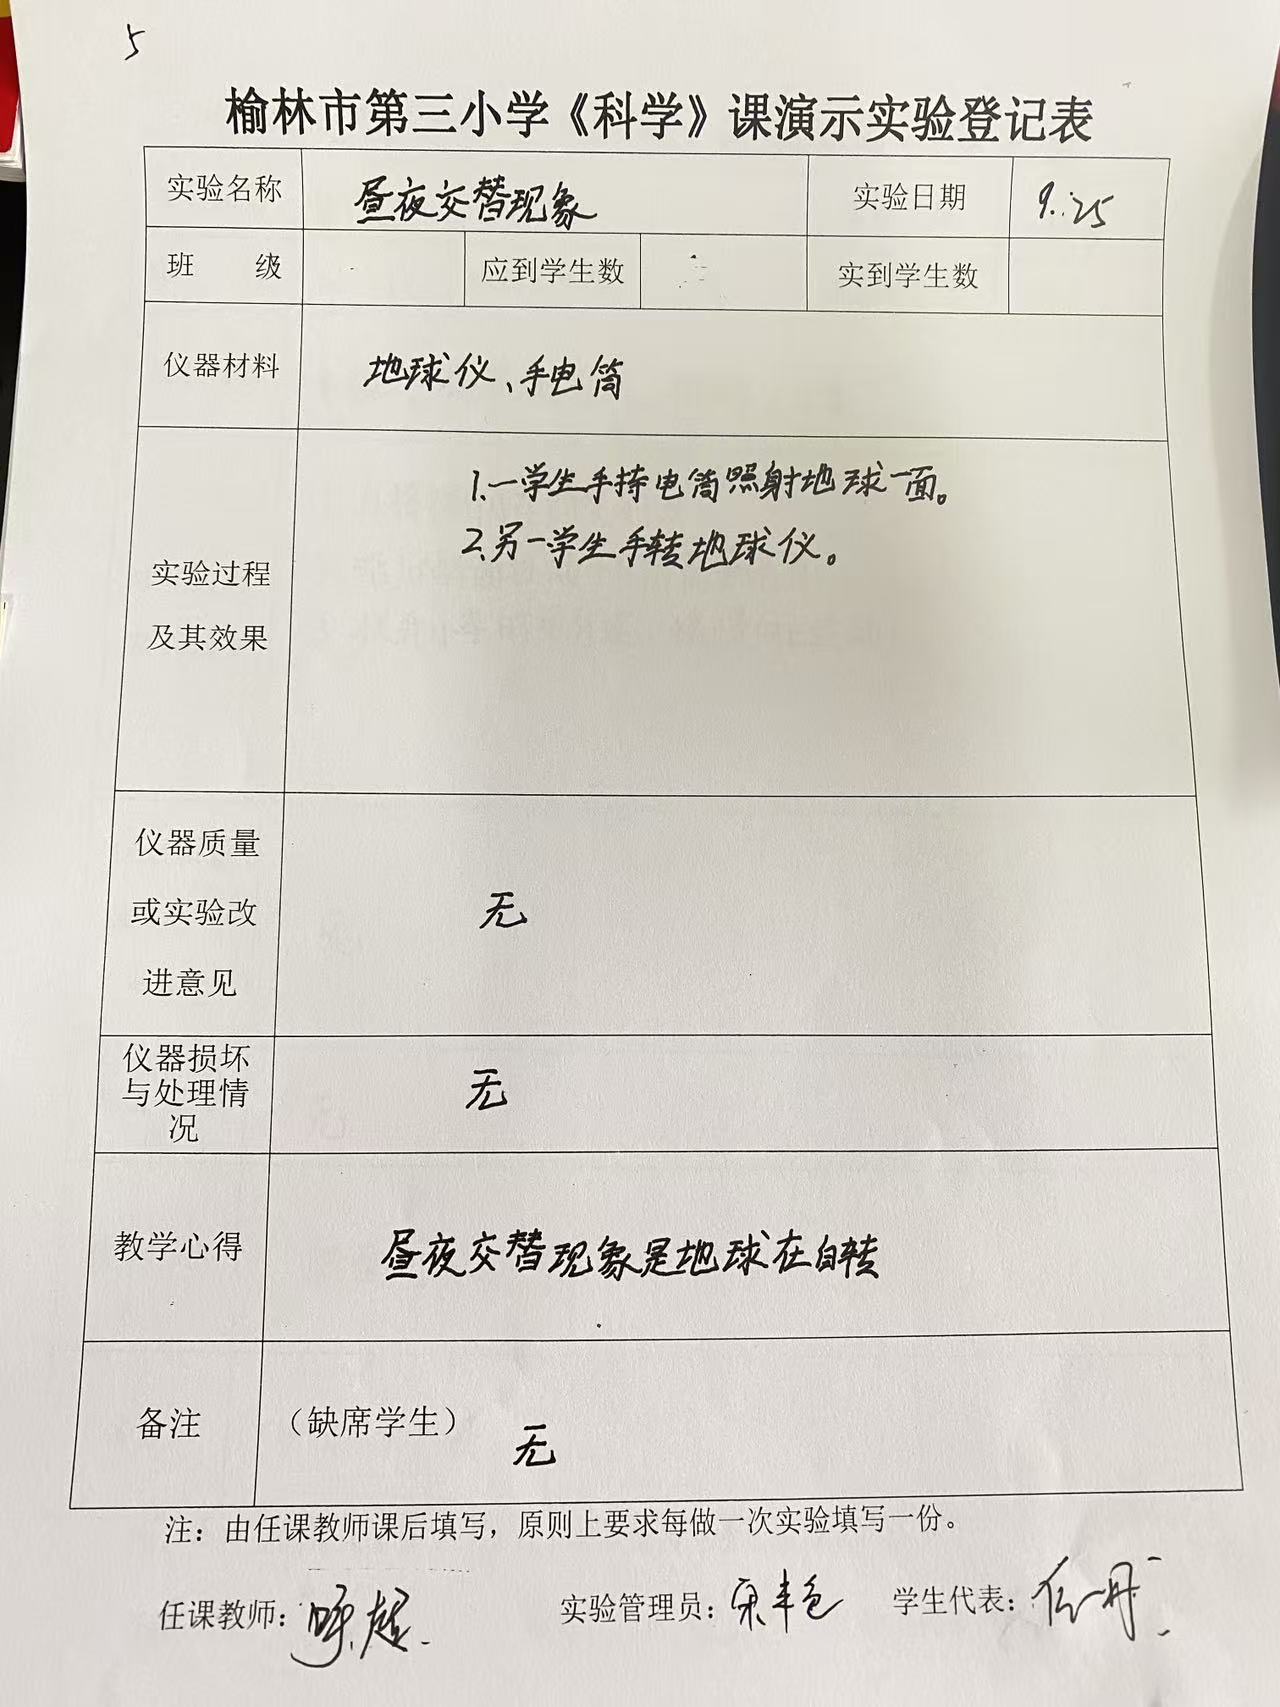 5
榆林市第三小学《科学》课演示实验登记表
实验名称 昼夜交替现象 实验日期 9.25
班 级 应到学生数 实到学生数
仪器材料 地球仪、手电筒
1.一学生手持电筒照射地球一面。
2.另一学生手转地球仪。
实验过程
及其效果
仪器质量
或实验改
进意见
无
仪器损坏
与处理情
况
无
教学心得 昼夜交替现象是地球在自转
备注 （缺席学生） 无
注：由任课教师课后填写，原则上要求每做一次实验填写一份。
任课教师： 实验管理员： 学生代表：